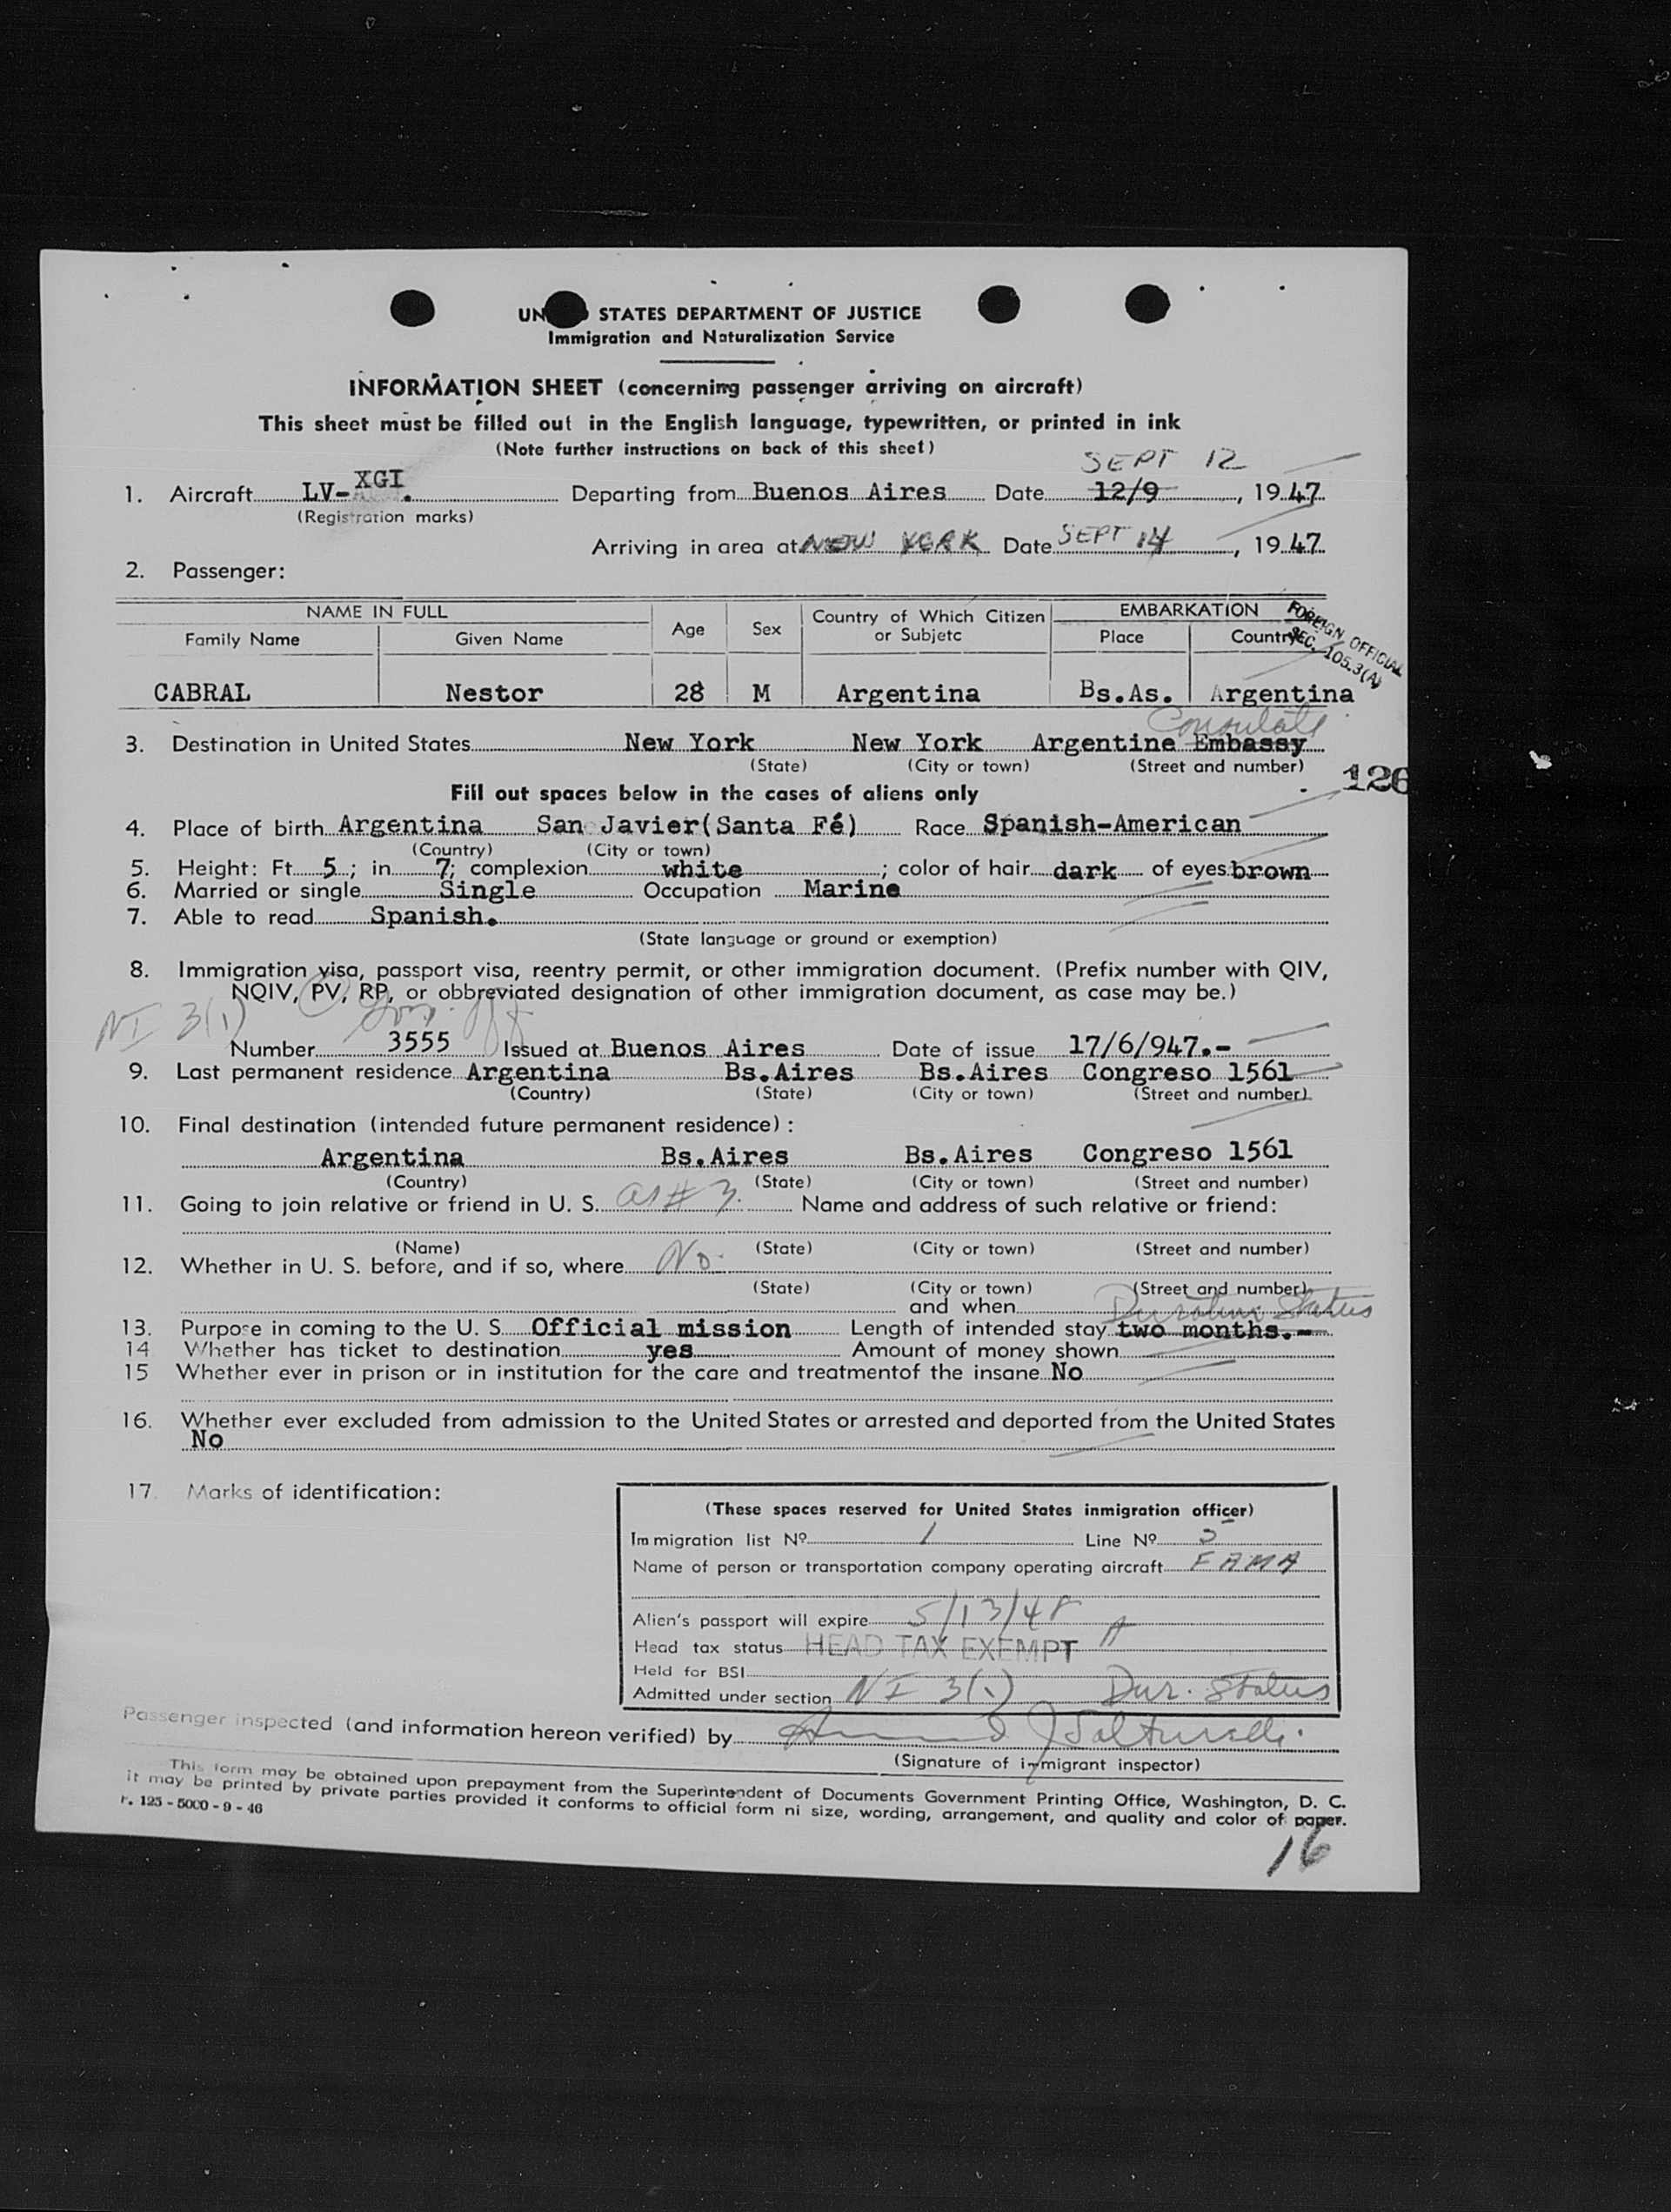 UN STATES DEPARTMENT OF JUSTICE
Immigration and Naturalization Service
INFORMATION SHEET (concerning passenger arriving on aircraft)
This sheet must be filled out in the English language, typewritten, or printed in ink
(Note further instructions on back of this sheet)
SEPT 12
1. Aircraft LV-XGI. Departing from Buenos Aires Date 12/9, 1947
(Registration marks)
Arriving in area at NEW YORK Date SEPT 14, 1947
2. Passenger:
NAME IN FULL Age Sex Country of Which Citizen or Subjetc EMBARKATION
Family Name Given Name Place Country
FOREIGN OFFICIAL
SEC. 105.3(A)
CABRAL Nestor 28 M Argentina Bs.As. Argentina
Consulate
3. Destination in United States New York New York Argentine Embassy
(State) (City or town) (Street and number)
126
Fill out spaces below in the cases of aliens only
4. Place of birth Argentina San Javier(Santa Fé) Race Spanish-American
(Country) (City or town)
5. Height: Ft. 5; in 7; complexion white; color of hair dark of eyes brown
6. Married or single Single Occupation Marine
7. Able to read Spanish.
(State language or ground or exemption)
8. Immigration visa, passport visa, reentry permit, or other immigration document. (Prefix number with QIV,
NQIV, PV, RP, or obbreviated designation of other immigration document, as case may be.)
NI 3(1)
Number 3555 Issued at Buenos Aires Date of issue 17/6/947.-
9. Last permanent residence Argentina Bs.Aires Bs.Aires Congreso 1561
(Country) (State) (City or town) (Street and number)
10. Final destination (intended future permanent residece) :
Argentina Bs.Aires Bs.Aires Congreso 1561
(Country) (State) (City or town) (Street and number)
11. Going to join relative or friend in U. S. as # 3. Name and address of such relative or friend:
(Name) (State) (City or town) (Street and number)
12. Whether in U. S. before, and if so, where No.
(State) (City or town) (Street and number)
and when
Duration Status
13. Purpose in coming to the U. S. Official mission Length of intended stay two months.-
14 Whether has ticket to destination yes Amount of money shown
15 Whether ever in prison or in institution for the care and treatmentof the insane No
16. Whether ever excluded from admission to the United States or arrested and deported from the United States
No
17. Marks of identification:
(These spaces reserved for United States inmigration officer)
Immigration list Nº 1 Line Nº 5
Name of person or transportation company operating aircraft FAMA
Alien's passport will expire 5/13/48
Head tax status HEAD TAX EXEMPT
Held for BSI
Admitted under section NI 3(1) Dur. Status
Passenger inspected (and information hereon verified) by
(Signature of immigrant inspector)
This form may be obtained upon prepayment from the Superintendent of Documents Government Printing Office, Washington, D. C.
it may be printed by private parties provided it conforms to official form ni size, wording, arrangement, and quality and color of paper.
F. 125 - 5000 - 9 - 46
16